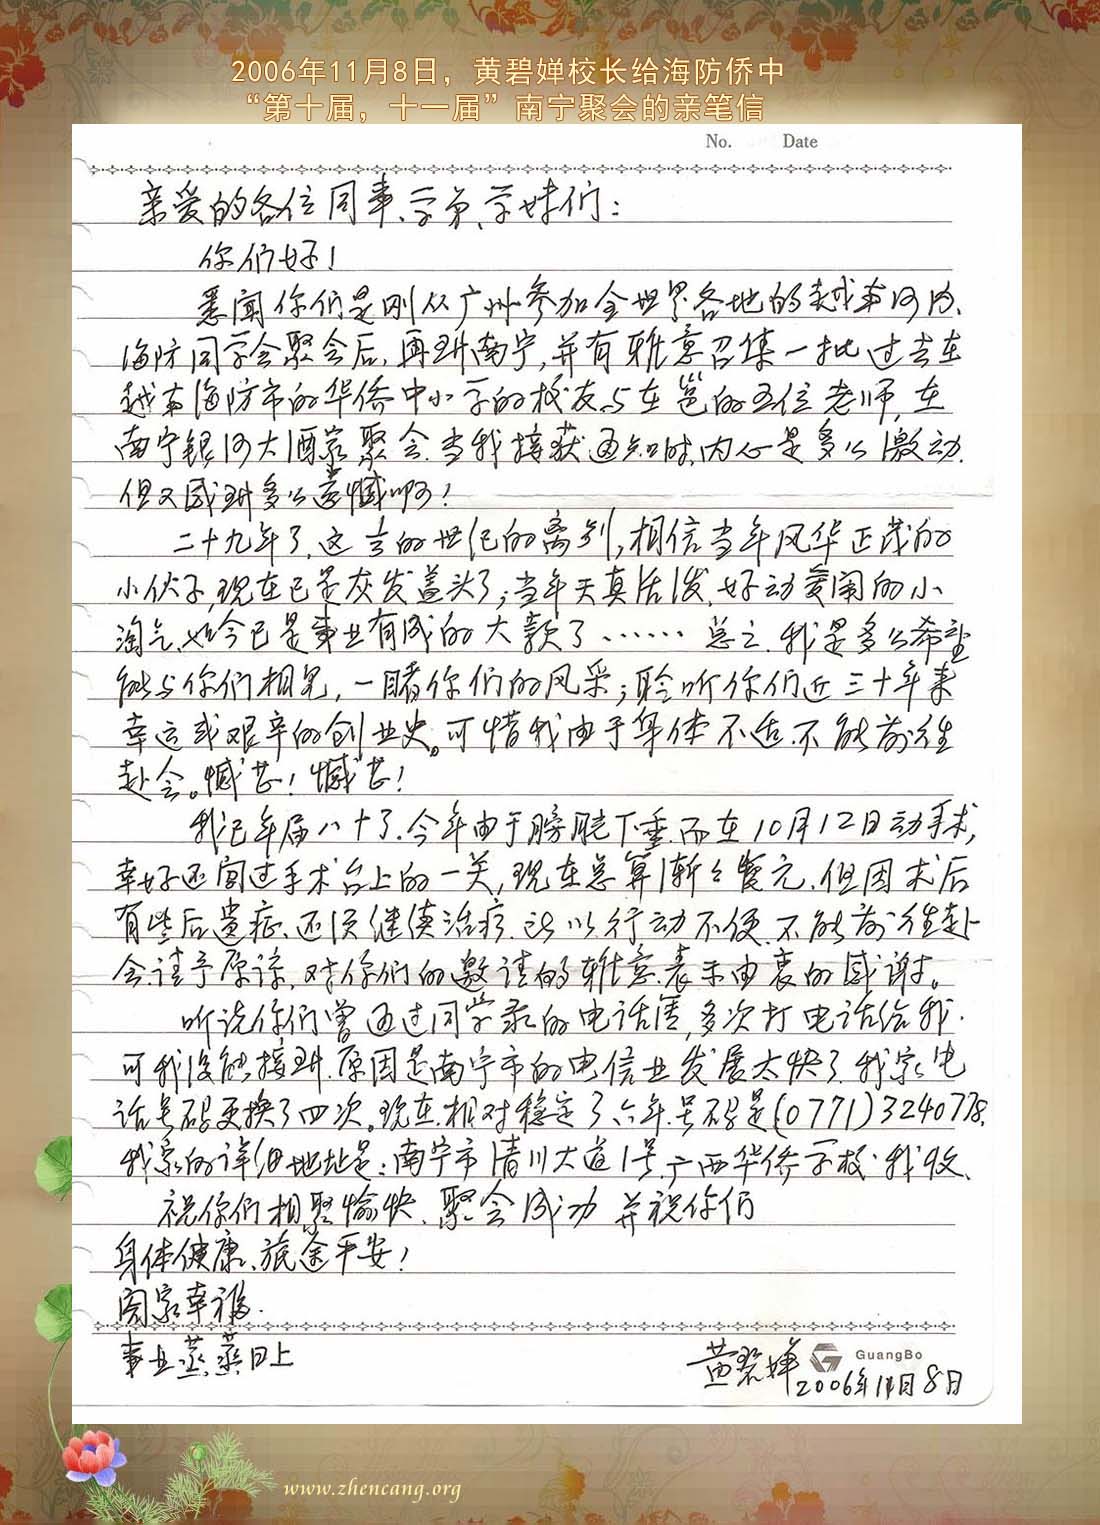 2006年11月8日，黄碧婵校长给海防侨中
“第十届，十一届”南宁聚会的亲笔信
No. Date
亲爱的各位同事、学弟、学妹们：
你们好！
悉闻你们是刚从广州参加全世界各地的越南河内、
海防同学会聚会后，再到南宁，并有雅意召集一批过去在
越南海防市的华侨中小学的校友与在邕的五位老师，在
南宁银河大酒家聚会。当我接获通知时，内心是多么激动，
但又感到多么遗憾啊！
二十九年了，这 的世纪的离别，相信当年风华正茂的
小伙子，现在已是灰发盖头了；当年天真活泼、好动爱闹的小
淘气，如今已是事业有成的大款了……总之，我是多么希望
能与你们相见，一睹你们的风采；聆听你们近三十年来
幸运或艰辛的创业史。可惜我由于身体不适，不能前往
赴会。憾甚！憾甚！
我已年届八十了，今年由于膀胱下垂，而在10月12日动手术，
幸好还闯过手术台上的一关，现在总算渐渐复元，但因术后
有些后遗症，还须继续治疗，所以行动不便，不能前往赴
会，请予原谅，对你们的邀请的雅意，表示由衷的感谢。
听说你们曾通过同学录的电话簿，多次打电话给我，
可我没能接到，原因是南宁市的电信业发展太快了，我家电
话号码更换了四次。现在，相对稳定了六年，号码是(0771)3240778，
我家的详细地址是：南宁市清川大道1号，广西华侨学校 我收、
祝你们相聚愉快、聚会成功 并祝你们
身体健康、旅途平安！
阖家幸福．
事业蒸蒸日上
黄碧婵 GuangBo
2006年11月8日
www.zhencang.org